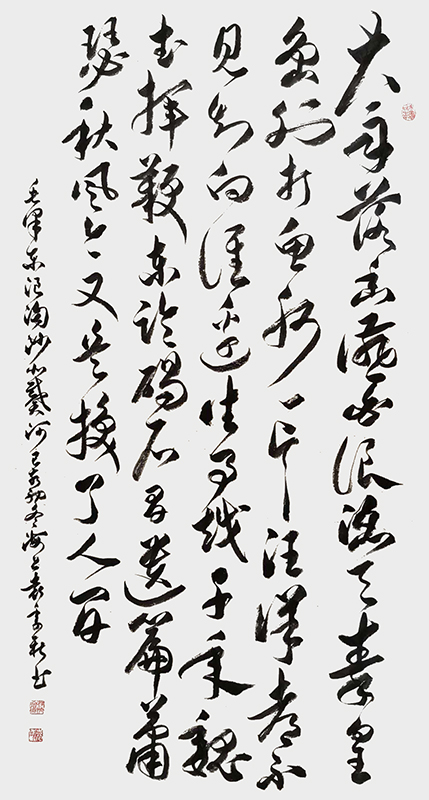 大雨落幽燕白浪滔天秦皇
岛外打鱼船一片汪洋都不
见知向谁边往事越千年魏
武挥鞭东临碣石有遗篇萧
瑟秋风今又是换了人间
毛泽东浪淘沙北戴河己亥初冬海上袁